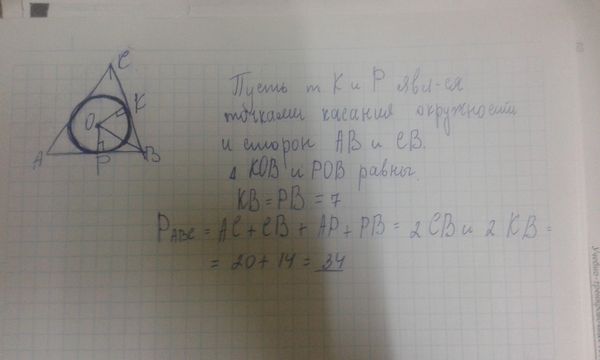 C
K
O
A
P
B
Пусть т K и P явл-ся
точками касания окружности
и сторон AB и CB.
Δ KOB и POB равны.
KB = PB = 7
PABC = AC + CB + AP + PB = 2 CB и 2 KB =
= 20 + 14 = 34